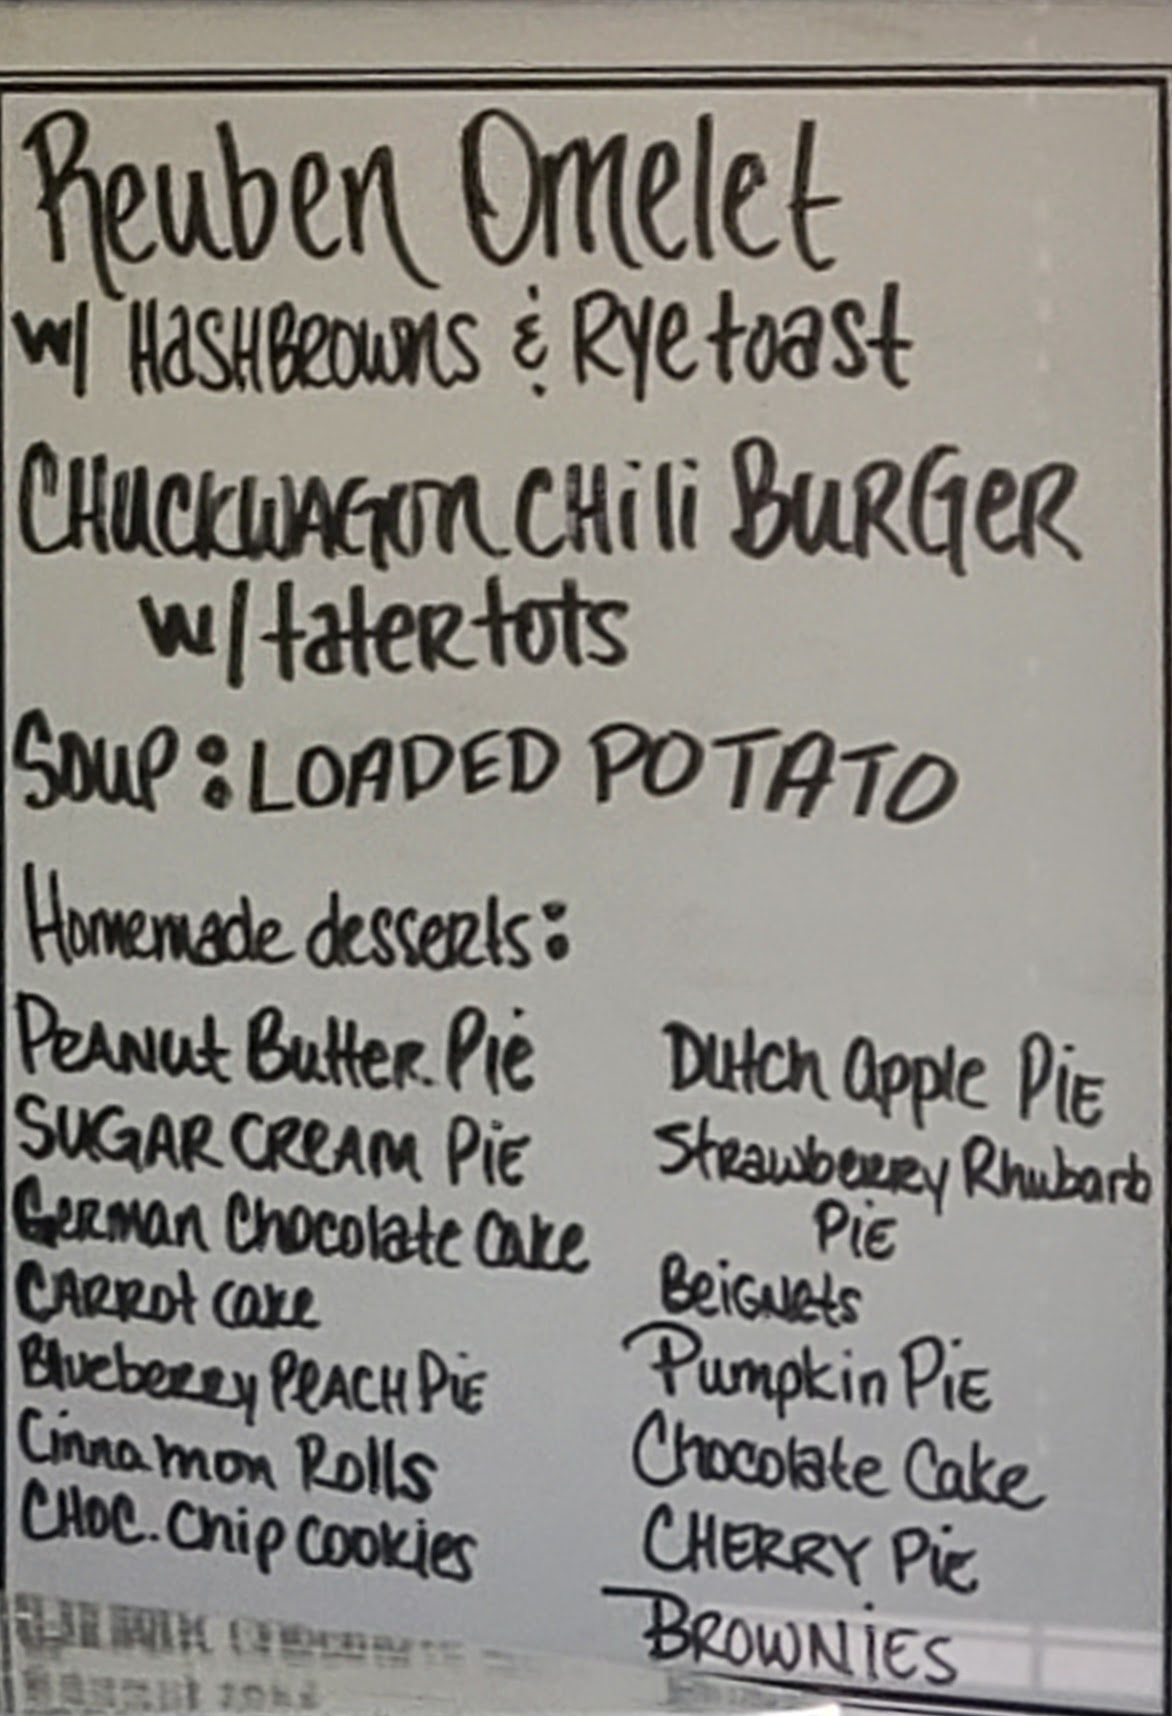 Reuben Omelet
w/ HASHBROWNS & Rye toast
CHUCKWAGON CHili BURGER
w/ tater tots
Soup: LOADED POTATO
Homemade desserts:
PEANUt Butter Pie
SUGAR CREAM PiE
German Chocolate Cake
CARROt cake
Blueberry PEACH PiE
Cinnamon Rolls
CHOC. Chip Cookies
Dutch Apple PiE
Strawberry Rhubarb
PiE
BeiGNets
Pumpkin PiE
Chocolate Cake
CHERRY PiE
BROWNiES